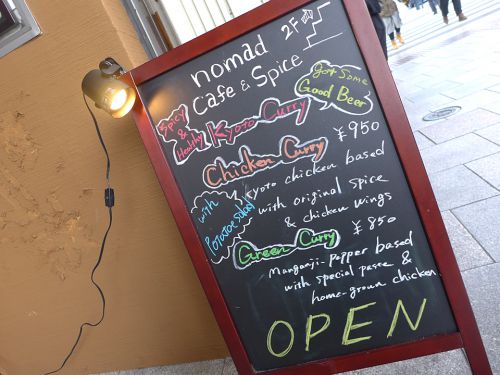 nomad 2F
Cafe & Spice
Got Some
Good Beer
Spicy
&
Healthy
Kyoto Curry
¥950
Chicken Curry
Kyoto chicken based
with original spice
& chicken wings
with
Potatoe salad
¥850
Green Curry
Manganji-Pepper based
with special paste &
home-grown chicken
OPEN